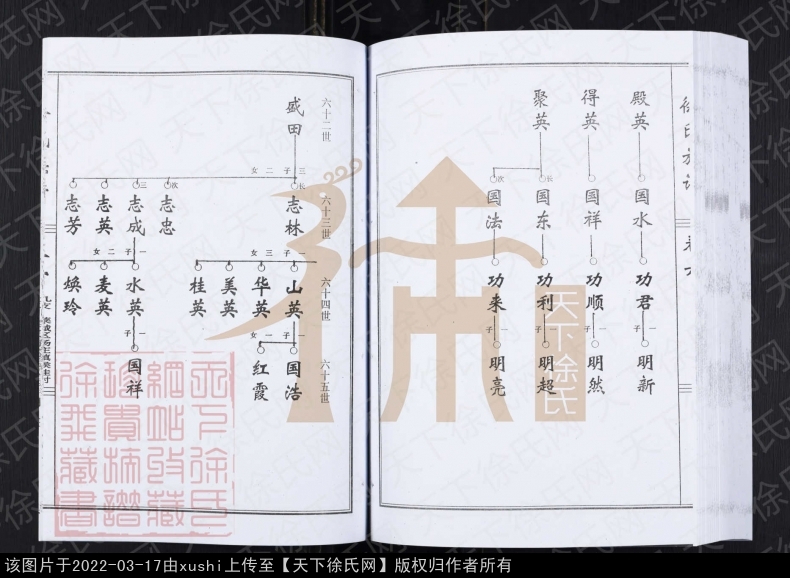 徐氏族谱
殿英
得英
聚英
国水
国祥
长
国东
次
国法
功君
功顺
功利
功来
一子
一子
一子
一子
明新
明然
明超
明亮
六十二世
六十三世
六十四世
六十五世
盛田
三子二女
长
志林
次
志忠
三
志成
志英
志芳
一子三女
山英
华英
美英
桂英
一子二女
水英
麦英
焕玲
一子一女
国浩
红霞
一子
国祥
天下徐氏
天下徐氏网
该图片于2022-03-17由xushi上传至【天下徐氏网】版权归作者所有